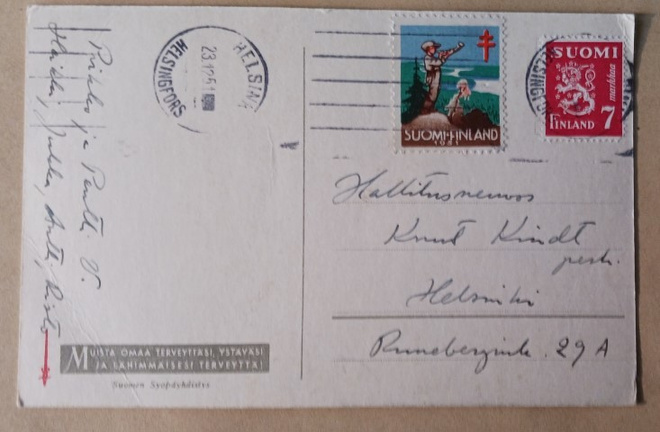 HELSINKI
23.12.51
HELSINGFORS
SUOMI-FINLAND
1951
SUOMI
markkaa
FINLAND 7
Hallitusneuvos
Knut Kindt
perh.
Helsinki
Runebergink. 29 A
Pirkko ja Pentti V.
Heikki, Jukka, Antti, Risto
MUISTA OMAA TERVEYTTÄSI, YSTÄVÄSI
JA LÄHIMMÄISESI TERVEYTTÄ!
Suomen Syöpäyhdistys